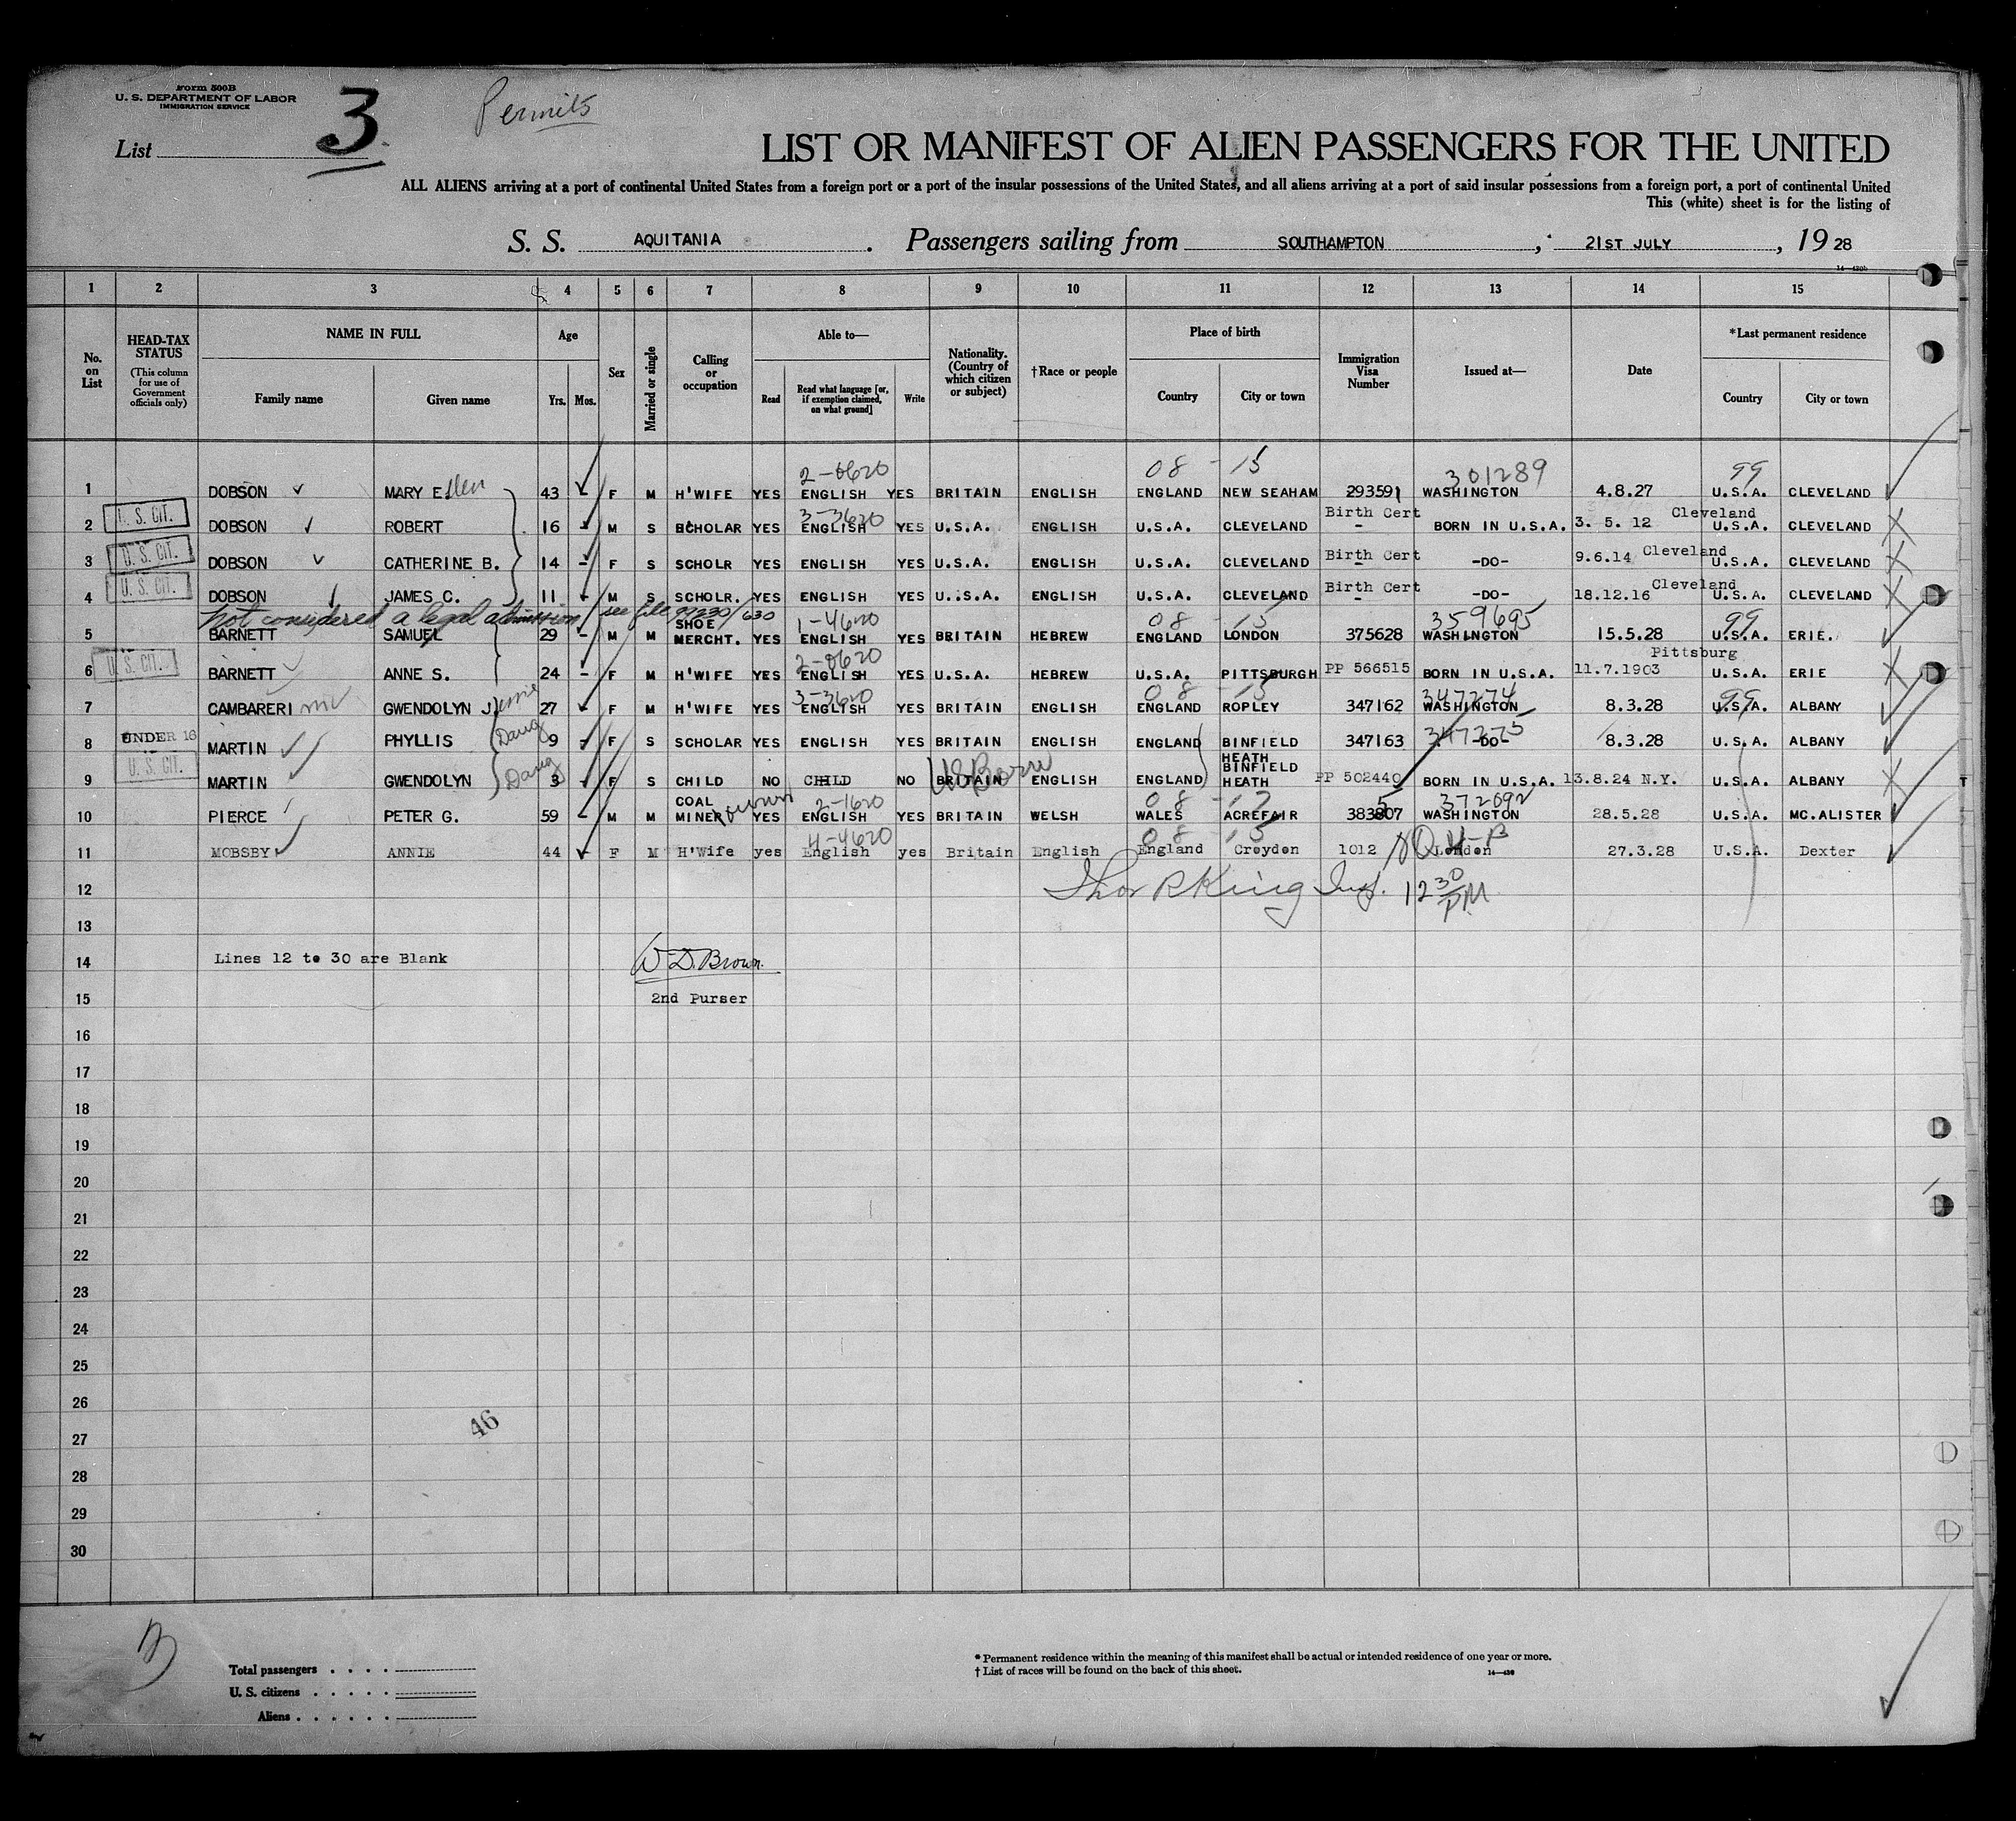 Form 500B
U. S. DEPARTMENT OF LABOR
IMMIGRATION SERVICE
List 3
Permits
LIST OR MANIFEST OF ALIEN PASSENGERS FOR THE UNITED
ALL ALIENS arriving at a port of continental United States from a foreign port or a port of the insular possessions of the United States, and all aliens arriving at a port of said insular possessions from a foreign port, a port of continental United
This (white) sheet is for the listing of
S. S. AQUITANIA. Passengers sailing from SOUTHAMPTON, 21ST JULY, 1928
1 2 3 4 5 6 7 8 9 10 11 12 13 14 15
No. on List HEAD-TAX STATUS (This column for use of Government officials only) NAME IN FULL Family name Given name Age Yrs. Mos. Sex Married or single Calling or occupation Able to— Read Read what language [or, if exemption claimed, on what ground] Write Nationality. (Country of which citizen or subject) †Race or people Place of birth Country City or town Immigration Visa Number Issued at— Date *Last permanent residence Country City or town
2-0620 08 - 15 301289 99
1 DOBSON MARY Ellen 43 - F M H'WIFE YES ENGLISH YES BRITAIN ENGLISH ENGLAND NEW SEAHAM 293591 WASHINGTON 4.8.27 U.S.A. CLEVELAND
U. S. CIT. 3-3620 Birth Cert Cleveland
2 DOBSON ROBERT 16 - M S SCHOLAR YES ENGLISH YES U.S.A. ENGLISH U.S.A. CLEVELAND - BORN IN U.S.A. 3. 5. 12 U.S.A. CLEVELAND
U. S. CIT. Birth Cert Cleveland
3 DOBSON CATHERINE B. 14 - F S SCHOLR YES ENGLISH YES U.S.A. ENGLISH U.S.A. CLEVELAND -DO- 9.6.14 U.S.A. CLEVELAND
U. S. CIT. Birth Cert Cleveland
4 DOBSON JAMES C. 11 - M S SCHOLR. YES ENGLISH YES U.S.A. ENGLISH U.S.A. CLEVELAND - -DO- 18.12.16 U.S.A. CLEVELAND
Not considered a legal admission see file 99230/630
SHOE 1-4620 08 - 15 359695 99
5 BARNETT SAMUEL 29 - M M MERCHT. YES ENGLISH YES BRITAIN HEBREW ENGLAND LONDON 375628 WASHINGTON 15.5.28 U.S.A. ERIE.
U. S. CIT. 2-0620 Pittsburg
6 BARNETT ANNE S. 24 - F M H'WIFE YES ENGLISH YES U.S.A. HEBREW U.S.A. PITTSBURGH PP 566515 BORN IN U.S.A. 11.7.1903 U.S.A. ERIE
3-3620 08 - 15 347274 99
7 CAMBARERI GWENDOLYN Jessie 27 F M H'WIFE YES ENGLISH YES BRITAIN ENGLISH ENGLAND ROPLEY 347162 WASHINGTON 8.3.28 U.S.A. ALBANY
UNDER 16 Daug 347275
8 MARTIN PHYLLIS 9 - F S SCHOLAR YES ENGLISH YES BRITAIN ENGLISH ENGLAND BINFIELD HEATH 347163 -DO- 8.3.28 U.S.A. ALBANY
U. S. CIT. Daug US Born
9 MARTIN GWENDOLYN 3 F S CHILD NO CHILD NO BRITAIN ENGLISH ENGLAND BINFIELD HEATH PP 502440 BORN IN U.S.A. 13.8.24 N.Y. U.S.A. ALBANY
COAL 2-1620 08 - 17 5 372692
10 PIERCE PETER G. 59 - M M MINER YES ENGLISH YES BRITAIN WELSH WALES ACREFAIR 383807 WASHINGTON 28.5.28 U.S.A. MC.ALISTER
4-4620 08 - 15
11 MOBSBY ANNIE 44 F M H'Wife yes English yes Britain English England Croydon 1012 London 27.3.28 U.S.A. Dexter
12 King Insp. 12 30 PM
13
14 Lines 12 to 30 are Blank W D. Brown
15 2nd Purser
16
17
18
19
20
21
22
23
24
25
26
46
27
28
29
30
Total passengers . . . .
U. S. citizens . . . . .
Aliens . . . . . .
* Permanent residence within the meaning of this manifest shall be actual or intended residence of one year or more.
† List of races will be found on the back of this sheet.